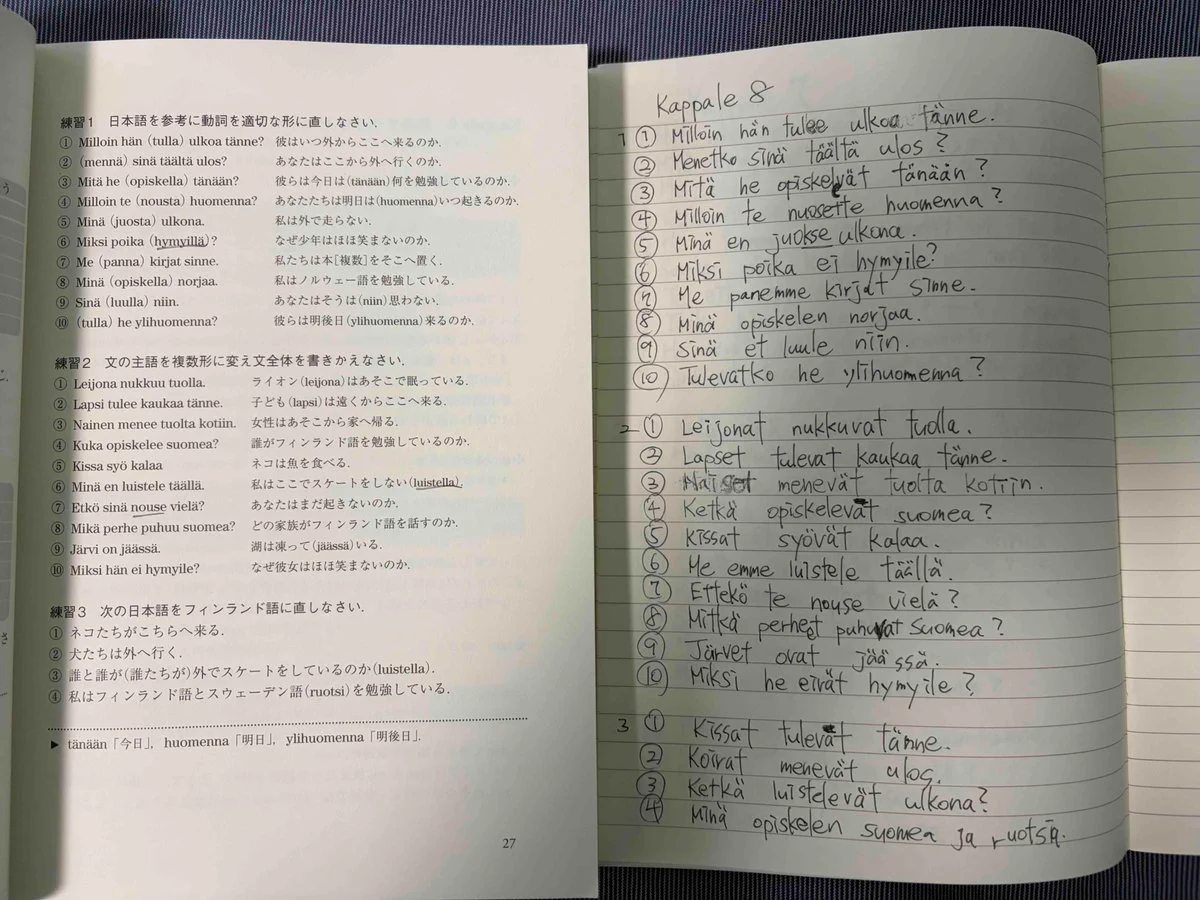 練習1 日本語を参考に動詞を適切な形に直しなさい.
① Milloin hän (tulla) ulkoa tänne? 彼はいつ外からここへ来るのか.
② (mennä) sinä täältä ulos? あなたはここから外へ行くのか.
③ Mitä he (opiskella) tänään? 彼らは今日は(tänään)何を勉強しているのか.
④ Milloin te (nousta) huomenna? あなたたちは明日は(huomenna)いつ起きるのか.
⑤ Minä (juosta) ulkona. 私は外で走らない.
⑥ Miksi poika (hymyillä)? なぜ少年はほほ笑まないのか.
⑦ Me (panna) kirjat sinne. 私たちは本[複数]をそこへ置く.
⑧ Minä (opiskella) norjaa. 私はノルウェー語を勉強している.
⑨ Sinä (luulla) niin. あなたはそうは(niin)思わない.
⑩ (tulla) he ylihuomenna? 彼らは明後日(ylihuomenna)来るのか.
練習2 文の主語を複数形に変え文全体を書きかえなさい.
① Leijona nukkuu tuolla. ライオン(leijona)はあそこで眠っている.
② Lapsi tulee kaukaa tänne. 子ども(lapsi)は遠くからここへ来る.
③ Nainen menee tuolta kotiin. 女性はあそこから家へ帰る.
④ Kuka opiskelee suomea? 誰がフィンランド語を勉強しているのか.
⑤ Kissa syö kalaa ネコは魚を食べる.
⑥ Minä en luistele täällä. 私はここでスケートをしない(luistella).
⑦ Etkö sinä nouse vielä? あなたはまだ起きないのか.
⑧ Mikä perhe puhuu suomea? どの家族がフィンランド語を話すのか.
⑨ Järvi on jäässä. 湖は凍って(jäässä)いる.
⑩ Miksi hän ei hymyile? なぜ彼女はほほ笑まないのか.
練習3 次の日本語をフィンランド語に直しなさい.
① ネコたちがこちらへ来る.
② 犬たちは外へ行く.
③ 誰と誰が(誰たちが)外でスケートをしているのか(luistella).
④ 私はフィンランド語とスウェーデン語(ruotsi)を勉強している.
▶ tänään「今日」, huomenna「明日」, ylihuomenna「明後日」.
27
Kappale 8
1 ① Milloin hän tulee ulkoa tänne.
② Menetko sinä täältä ulos?
③ Mitä he opiskelevät tänään?
④ Milloin te nuosette huomenna?
⑤ Minä en juokse ulkona.
⑥ Miksi poika ei hymyile?
⑦ Me panemme kirjat sinne.
⑧ Minä opiskelen norjaa.
⑨ Sinä et luule niin.
⑩ Tulevatko he ylihuomenna?
2 ① Leijonat nukkuvat tuolla.
② Lapset tulevat kaukaa tänne.
③ Naiset menevät tuolta kotiin.
④ Ketkä opiskelevat suomea?
⑤ Kissat syövät kalaa.
⑥ Me emme luistele täällä.
⑦ Ettekö te nouse vielä?
⑧ Mitkä perheet puhuvat suomea?
⑨ Järvet ovat jäässä.
⑩ Miksi he eivät hymyile?
3 ① Kissat tulevat tänne.
② Koirat menevät ulos.
③ Ketkä luistelevät ulkona?
④ Minä opiskelen suomea ja ruotsia.